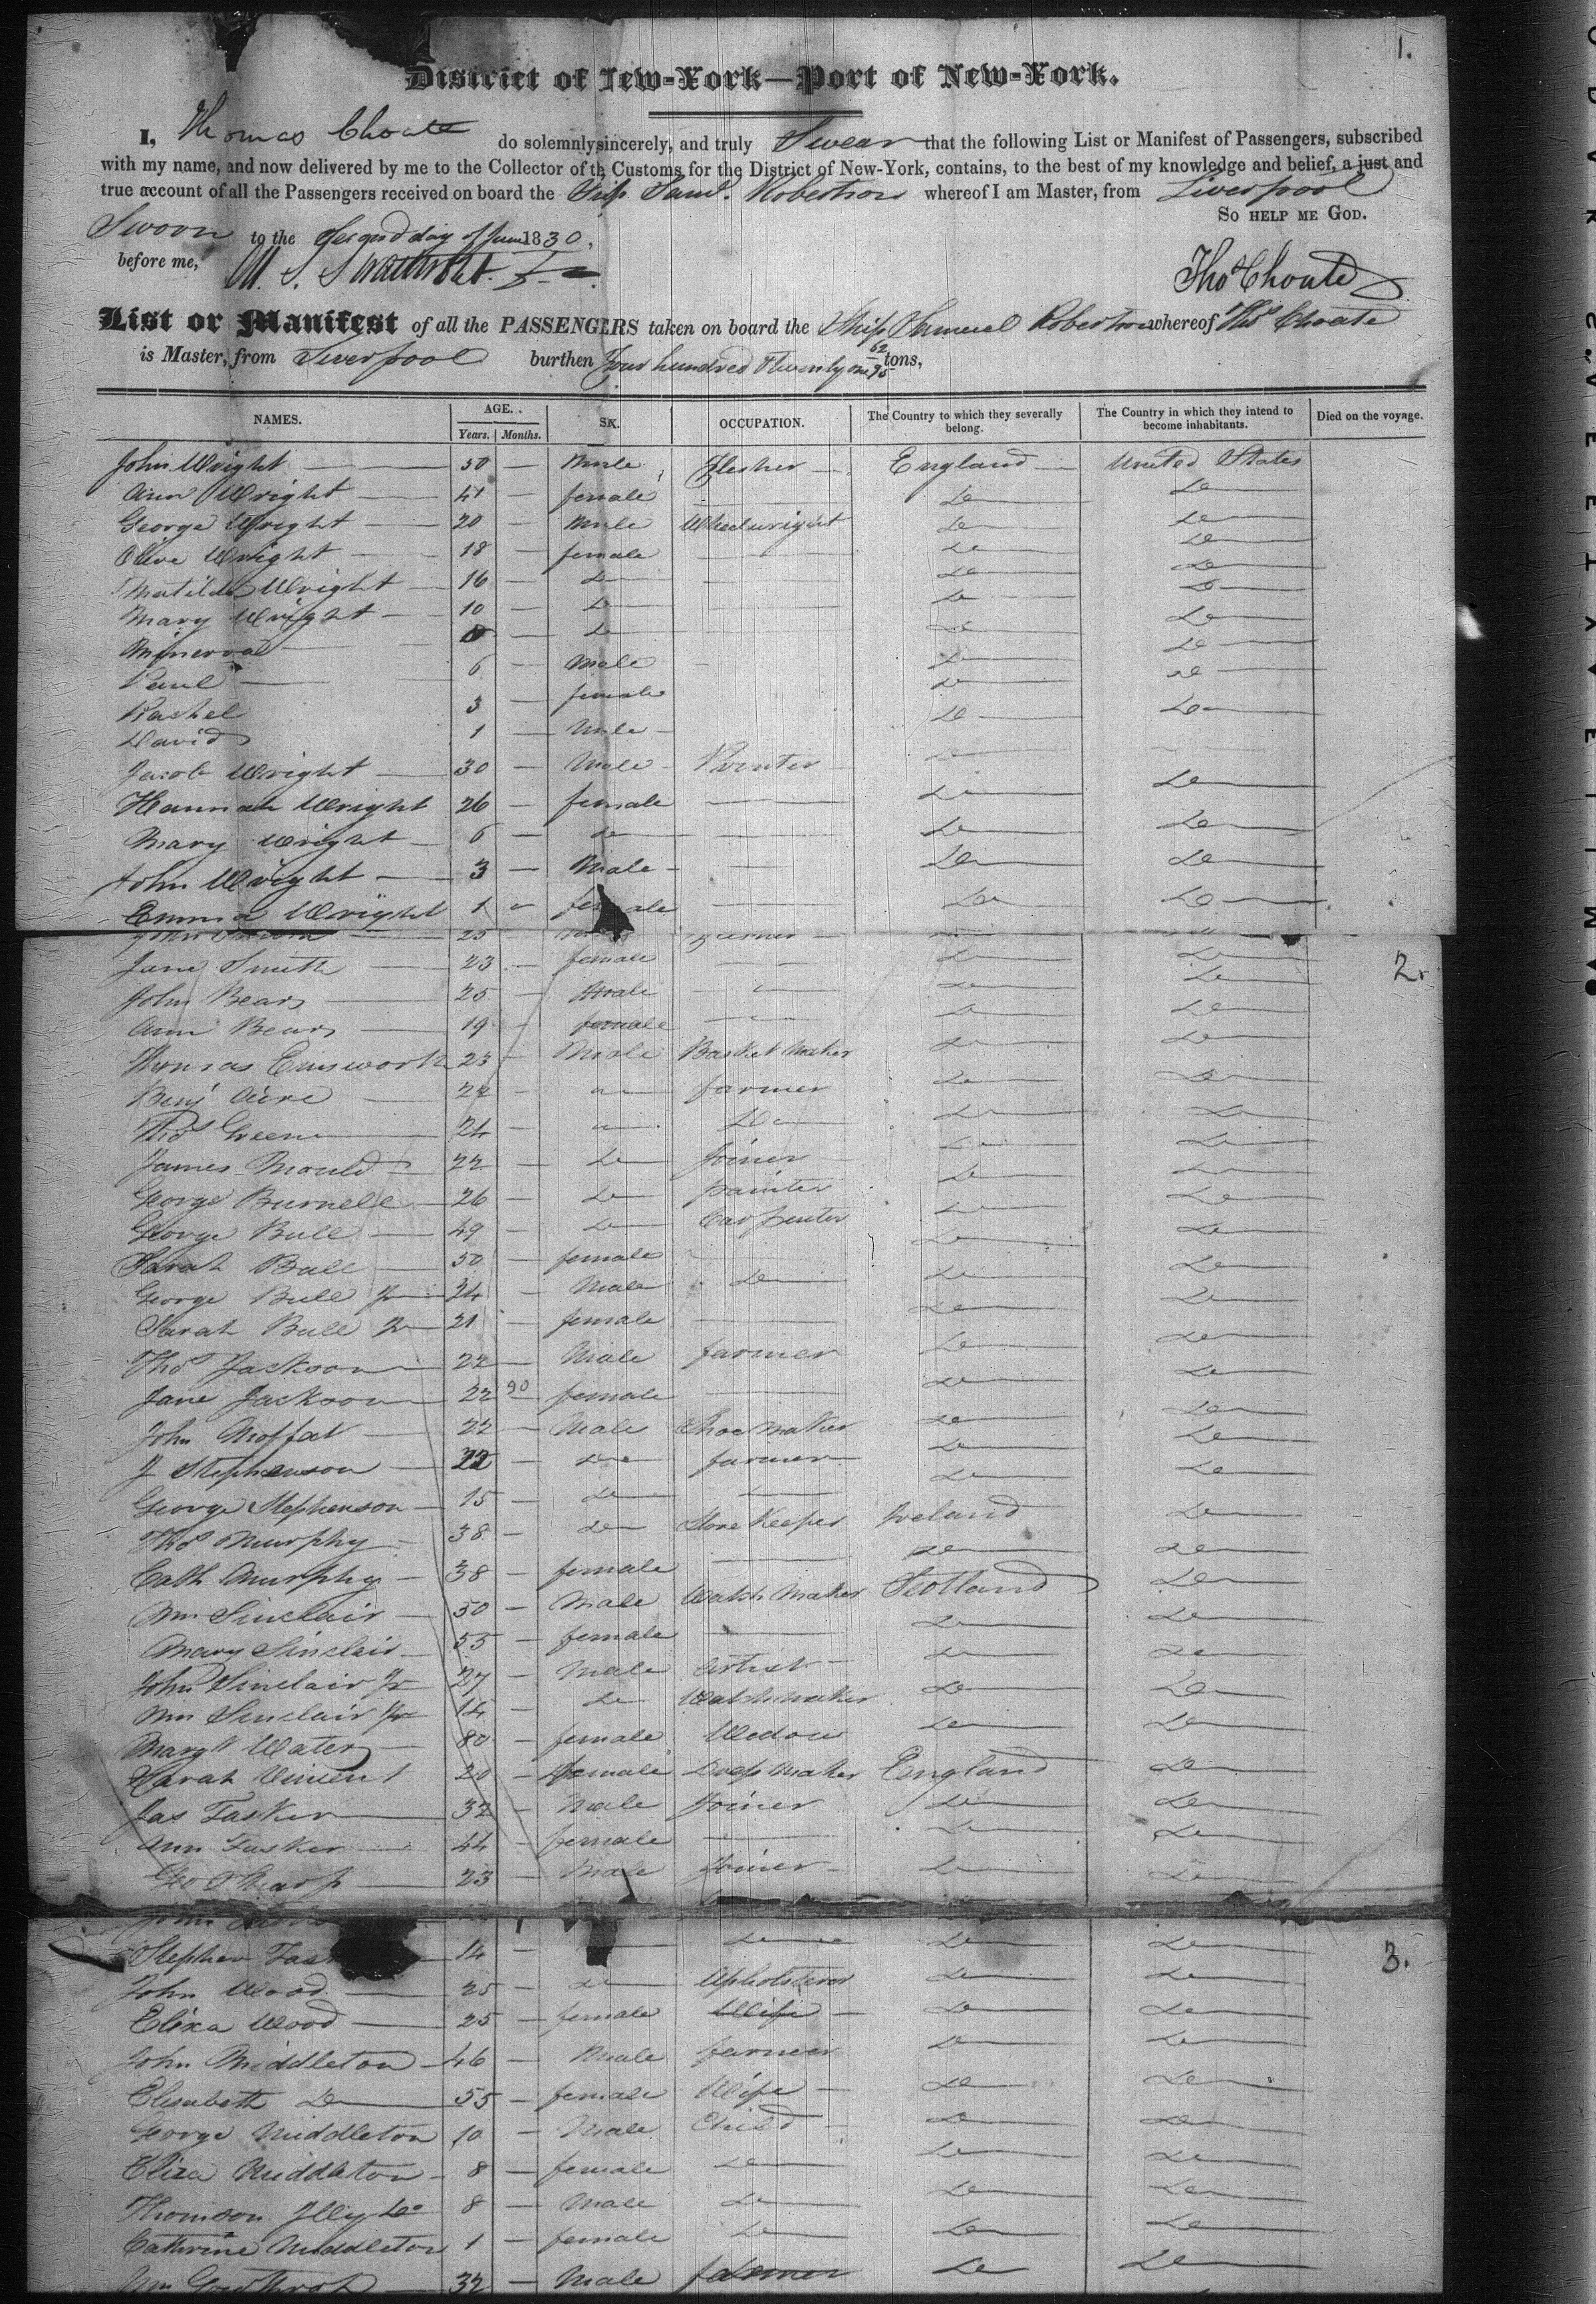 1.
District of New-York—Port of New-York.
I, Thomas Choate do solemnly sincerely, and truly Swear that the following List or Manifest of Passengers, subscribed
with my name, and now delivered by me to the Collector of th Customs for the District of New-York, contains, to the best of my knowledge and belief, a just and
true account of all the Passengers received on board the Ship Saml. Robertson whereof I am Master, from Liverpool
So help me God.
Sworn to the Second day of June 1830,
before me,
Thos Choate
List or Manifest of all the PASSENGERS taken on board the Ship Samuel Robertson whereof Thos Choate
is Master, from Liverpool burthen Four hundred & twenty one 62/95 tons,
NAMES. AGE. Years. Months. SEX. OCCUPATION. The Country to which they severally belong. The Country in which they intend to become inhabitants. Died on the voyage.
John Wright 50 — Male England United States
Ann Wright 41 — female Do Do
George Wright 20 — Male Wheelwright Do Do
Olive Wright 18 — female Do Do
Matilda Wright 16 — Do Do Do
Mary Wright 10 — Do Do Do
Minerva — Do Do Do
Paul 6 — Male Do Do
Rachel 3 — female Do Do
David 1 — Male Do Do
Jacob Wright 30 — Male Do
Hannah Wright 26 — female Do Do
Mary Wright 6 — Do Do Do
John Wright 3 — Male Do Do
Emma Wright 1 female Do Do
2.
25
Jane Smith 23 — female Do Do
John Bears 25 Male Do Do
Ann Bears 19 female Do Do
Thomas Emsworth 23 Male Basket Maker Do Do
Benj farmer Do Do
Thos Green 24 Do Do Do
James Mould 22 — Do Joiner Do Do
George Burnell 26 — Do painter Do Do
George Bull 49 — Do Carpenter Do Do
Sarah Bull 50 — female Do Do
George Bull Jr 24 Male Do Do Do
Sarah Bull Jr 21 female Do Do
Thos Jackson 22 — Male farmer Do Do
Jane Jackson 22 90 female Do Do
John Moffat 22 — Male Shoe Maker Do Do
J Stephenson 22 — Do farmer Do Do
George Stephenson 15 — Do Do
Thos Murphy 38 — Do Store Keeper Ireland Do
Cath Murphy 38 — female Do Do
Wm Sinclair 50 — Male Watch Maker Scotland Do
Mary Sinclair 55 — female Do Do
John Sinclair Jr 27 — Male Artist Do Do
Wm Sinclair Jr 14 — Do Watchmaker Do Do
Margt Water 80 — female Wedow Do Do
Sarah Vincent 20 — female Dress Maker England Do
Jas Tasker 32 — Male Joiner Do Do
Ann Tasker 44 — female Do Do
Geo Sharp 23 — Male Joiner Do Do
3.
John
Stephen Tas 14 — Do Do Do
John Wood 25 — Do Upholsterer Do Do
Eliza Wood 25 — female Wife Do Do
John Middleton 46 — Male farmer Do Do
Elisabeth Do 55 — female Wife Do Do
George Middleton 10 — Male Child Do Do
Eliza Middleton 8 — female Do Do Do
Thomson Do 8 — Male Do Do Do
Cathrine Middleton 1 — female Do Do Do
Wm 32 — Male farmer Do Do